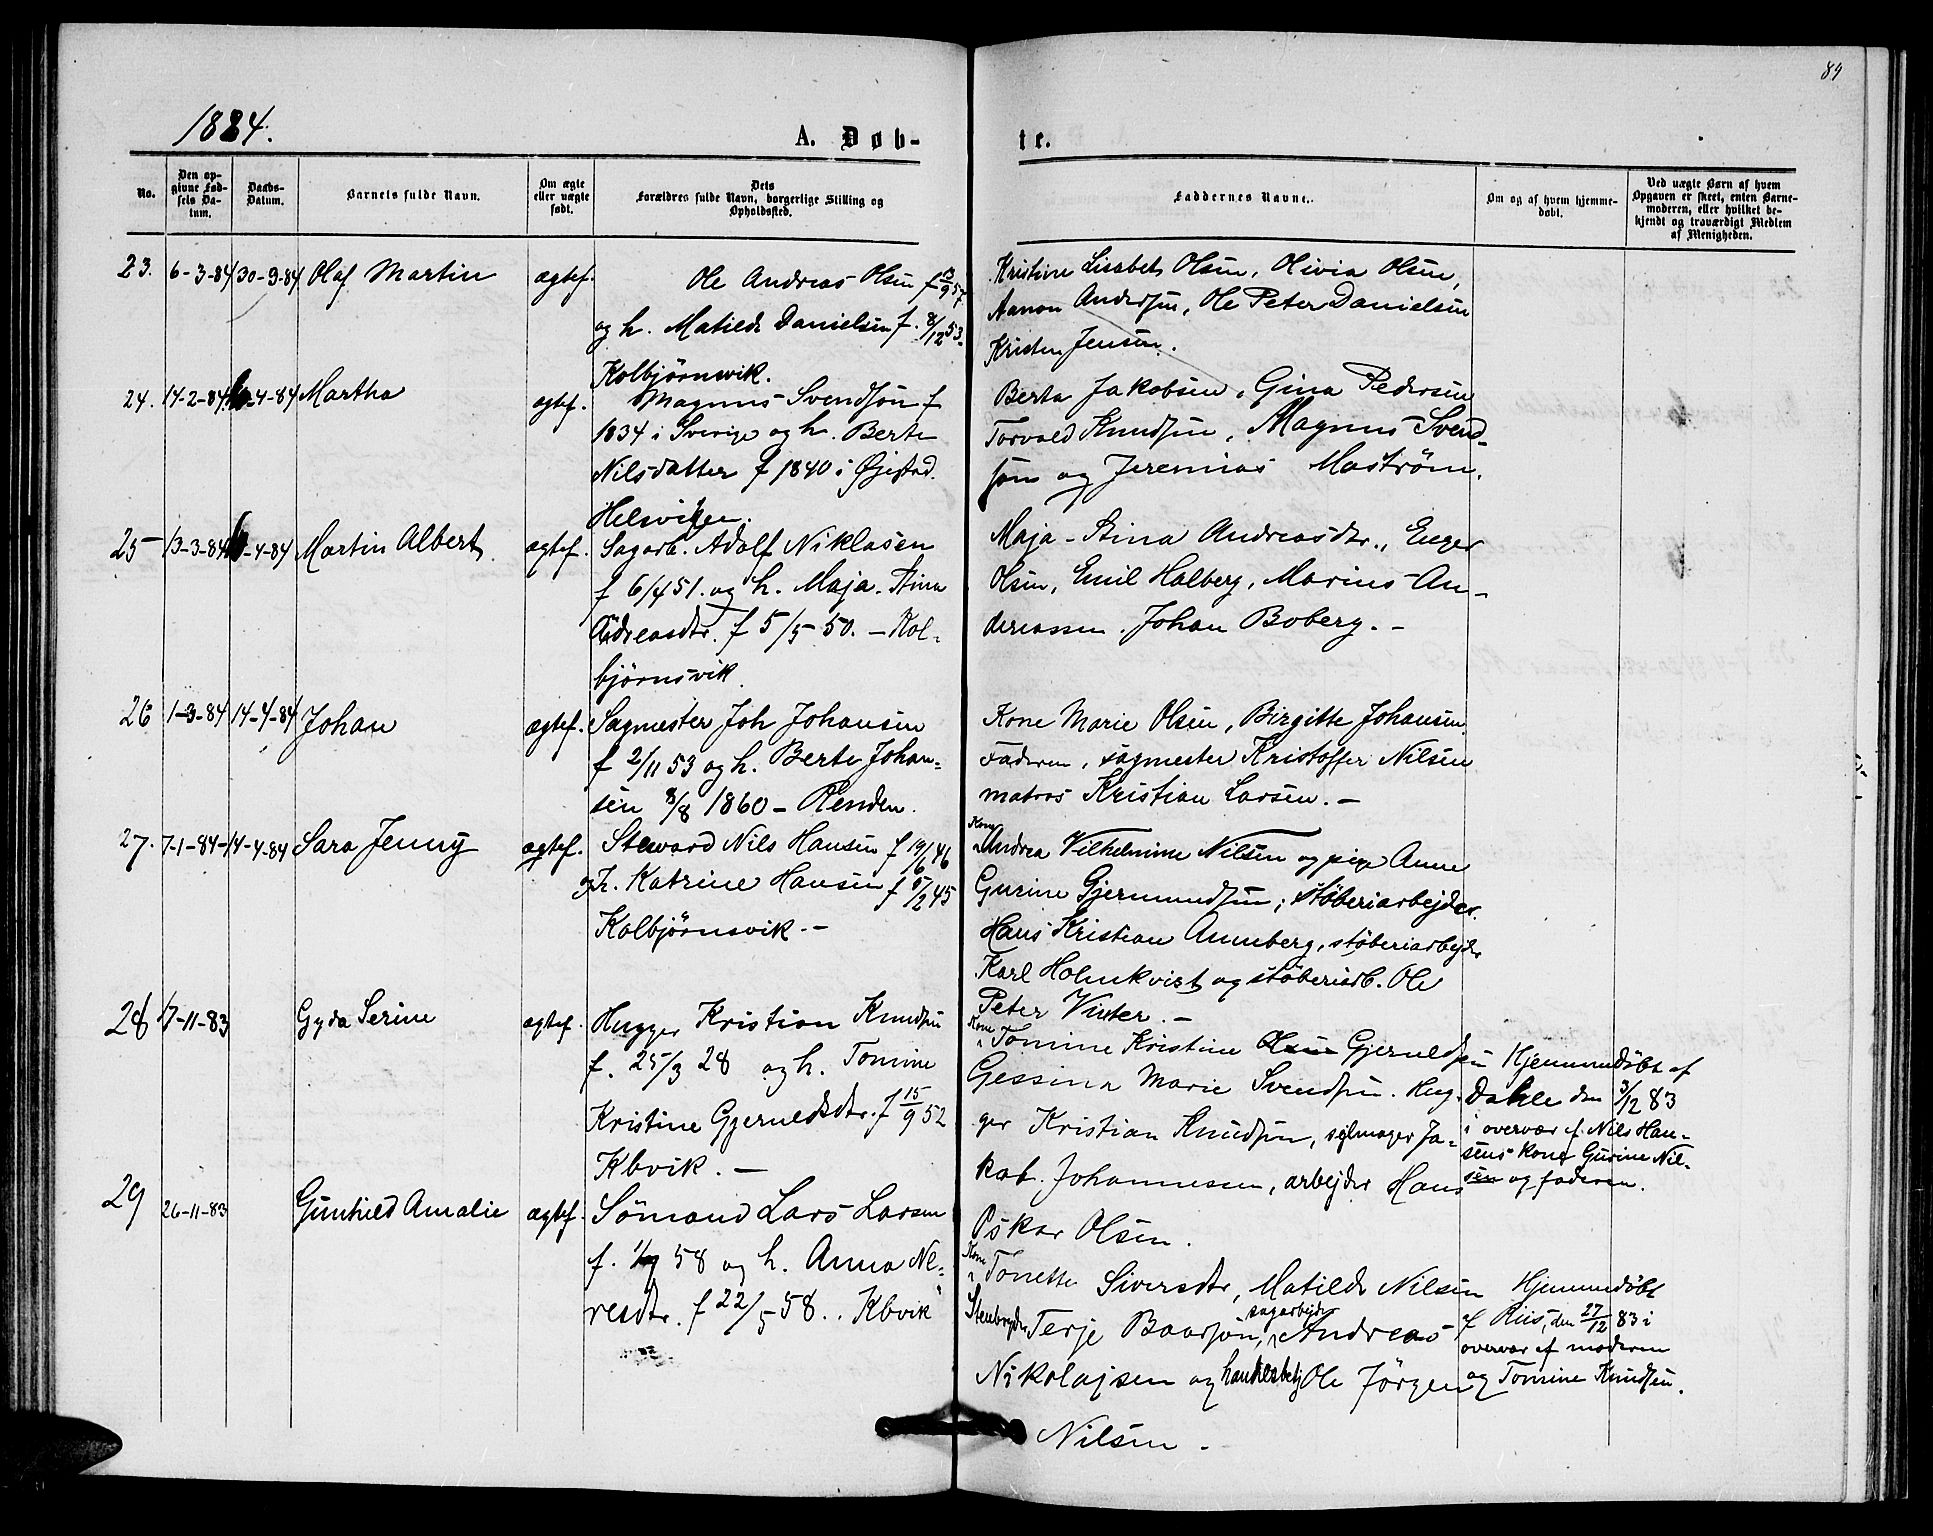 89
1884.
A. Døb-
te.
No.
Den op-
givne Fød-
sels Da-
tum.
Daabs-
Datum.
Barnets fulde Navn.
Om ægte
eller uægte
født.
Dets
Forældres fulde Navn, borgerlige Stilling og
Opholdssted.
Faddernes Navne.
Om og af hvem hjemme-
døbt.
Ved uægte Børn af hvem
Opgaven er skeet, enten Barne-
moderen, eller hvilket be-
kjendt og troværdigt Medlem
af Menigheden.
23. 6-3-84 30-9-84 Olaf Martin ægtef.
Ole Andreas Olsen f
og h. Matilde Danielsen f. 8/12 53.
Kolbjørnsvik.
Kristine Lisabet Olsen, Olivia Olsen,
Aanon Andersen, Ole Peter Danielsen
Kristen Jensen.
24. 14-2-84 -4-84 Martha ægtef.
Magnus Svendsøn f
1834 i Sverige og h. Berte
Nilsdatter f 1840 i Øjestad.
Helsviken.
Berta Jakobsen, Gina Pedersen
Torvald Knudsen, Magnus Svend-
søn og Jeremias Maström.
25 13-3-84 -4-84 Martin Albert. ægtef.
Sagarb. Adolf Niklasen
f 6/4 51. og h. Maja-Stina
Andreasdtr. f 5/5 50. - Kol-
bjørnsvik
Maja-Stina Andreasdtr., Enger
Olsen, Emil Halberg, Marius An-
dereassen. Johan Boberg. -
26 1-3-84 14-4-84 Johan ægtef.
Sagmester Joh Johansen
f 2/11 53 og h. Berte Johan-
sen 8/8 1860 - Renden.
Kone Marie Olsen, Birgitte Johansen
Faderen, sagmester Kristoffer Nilsen
matros Kristian Larsen. -
27. 7-1-84 14-4-84 Sara Jenny ægtef.
Steward Nils Hansen f 19/6 46
og h. Katrine Hansen f 5/2 45
Kolbjørnsvik. -
Kone
Andrea Vilhelmine Nilsen og pige Anne
Gurine Gjermundsen; støberiarbejder
Hans Kristian Anneberg, støberiarbejder
Karl Holmkvist og støberiarb. Ole
Peter Vinter. -
28 17-11-83 Gyda Serine ægtef.
Hugger Kristian Knudsen
f. 25/3 28 og h. Tomine
Kristine Gjeruldsdtr. f 15/9 52
Kbvik. -
Kone
Tomine Kristine Olsen Gjeruldsen
Gessina Marie Svendsen. Hug-
ger Kristian Knudsen, sejlmager Ja-
kob Johannesen, arbejder Hans
Oskar Olsen.
Hjemmedøbt af
Dahle den 3/12 83
i overvær af Nils Han-
sens kone Gurine Nil-
sen og faderen.
29 26-11-83 Gunhild Amalie ægtef.
Sømand Lars Larsen
f. 58 og h. Anna Ne-
resdtr. f 22/5 58. . Kbvik
Kone
Tonette Siversdtr, Matilde Nilsen
Stenbryder Terje Baarsøn, sagarbejder Andreas
Nikolajsen og handelsbetj Ole Jørgen
Nilsen -
Hjemmedøbt
af Riis, den 27/12 83 i
overvær af moderen
og Tomine Knudsen.